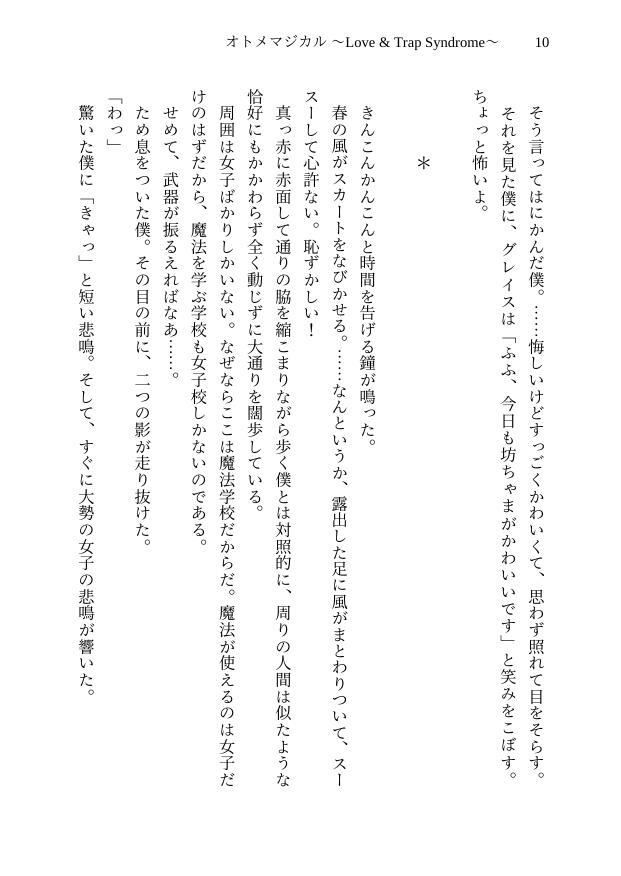 オトメマジカル ～Love & Trap Syndrome～ 10
そう言ってはにかんだ僕。……悔しいけどすっごくかわいくて、思わず照れて目をそらす。
それを見た僕に、グレイスは「ふふ、今日も坊ちゃまがかわいいです」と笑みをこぼす。
ちょっと怖いよ。
＊
きんこんかんこんと時間を告げる鐘が鳴った。
春の風がスカートをなびかせる。……なんというか、露出した足に風がまとわりついて、スー
スーして心許ない。恥ずかしい！
真っ赤に赤面して通りの脇を縮こまりながら歩く僕とは対照的に、周りの人間は似たような
恰好にもかかわらず全く動じずに大通りを闊歩している。
周囲は女子ばかりしかいない。なぜならここは魔法学校だからだ。魔法が使えるのは女子だ
けのはずだから、魔法を学ぶ学校も女子校しかないのである。
せめて、武器が振るえればなあ……。
ため息をついた僕。その目の前に、二つの影が走り抜けた。
「わっ」
驚いた僕に「きゃっ」と短い悲鳴。そして、すぐに大勢の女子の悲鳴が響いた。